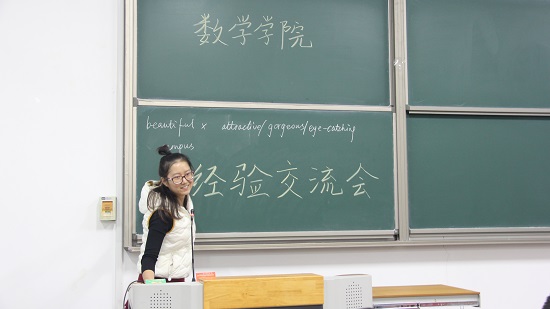 数学学院
beautiful × attractive/gorgeous/eye-catching
经验交流会